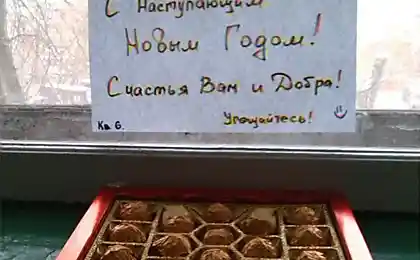 С наступающим
Новым Годом!
Счастья Вам и Добра!
Угощайтесь!
Кв 6.